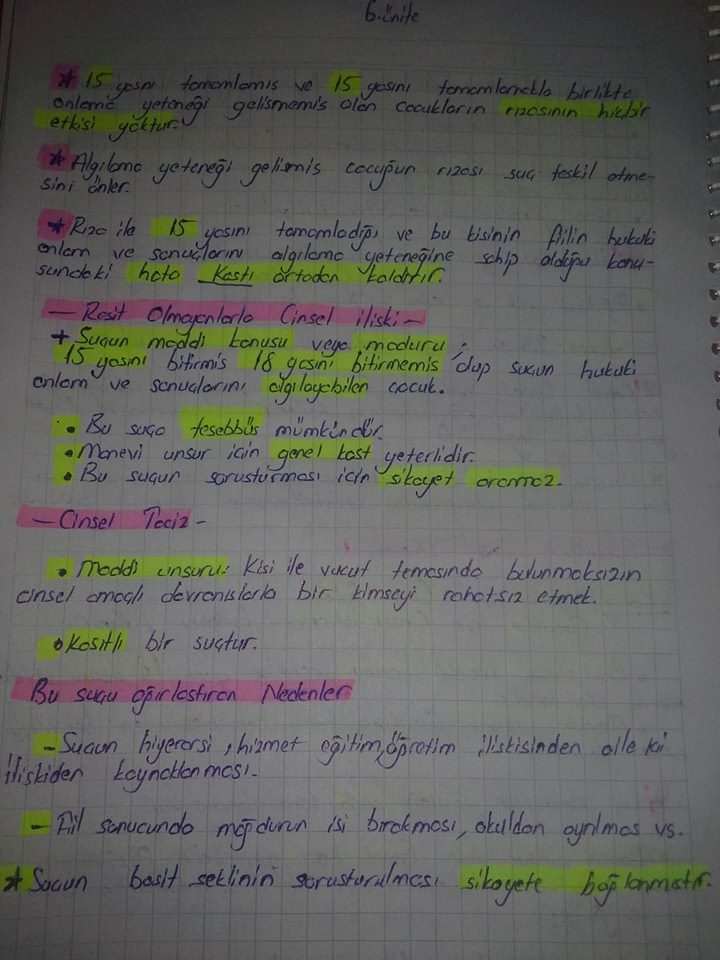 6.ünite
* 15 yaşnı tamamlamış ve 15 yaşını tamamlamakla birlikte
anlama yeteneği gelişmemiş olan çocukların rızasının hiçbir
etkisi yoktur.
* Algılama yeteneği gelişmiş çocuğun rızası suç teşkil etme-
sini önler.
* Rıza ile 15 yaşını tamamladığı ve bu kişinin fiilin hukuki
anlam ve sonuçlarını algılama yeteneğine sahip olduğu konu-
sundaki hata kastı ortadan kaldırır.
- Reşit Olmayanlarla Cinsel ilişki -
+ Suçun maddi konusu veya mağduru ;
15 yaşını bitirmiş 18 yaşını bitirmemiş olup suçun hukuki
anlam ve sonuçlarını algılayabilen çocuk.
• Bu suça teşebbüs mümkündür.
• Manevi unsur için genel kast yeterlidir.
• Bu suçun soruşturması için şikayet aranmaz.
- Cinsel Taciz -
• Maddi unsuru: Kişi ile vucut temasında bulunmaksızın
cinsel amaçlı davranışlarla bir kimseyi rahatsız etmek.
• Kasıtlı bir suçtur.
Bu suçu ağırlaştıran Nedenler
- Suçun hiyerarşi, hizmet eğitim, öğretim ilişkisinden aile içi
ilişkiden kaynaklanması.
- Fiil sonucunda mağdurun işi bırakması, okuldan ayrılması vs.
* Suçun basit şeklinin soruşturulması şikayete bağlanmıştır.